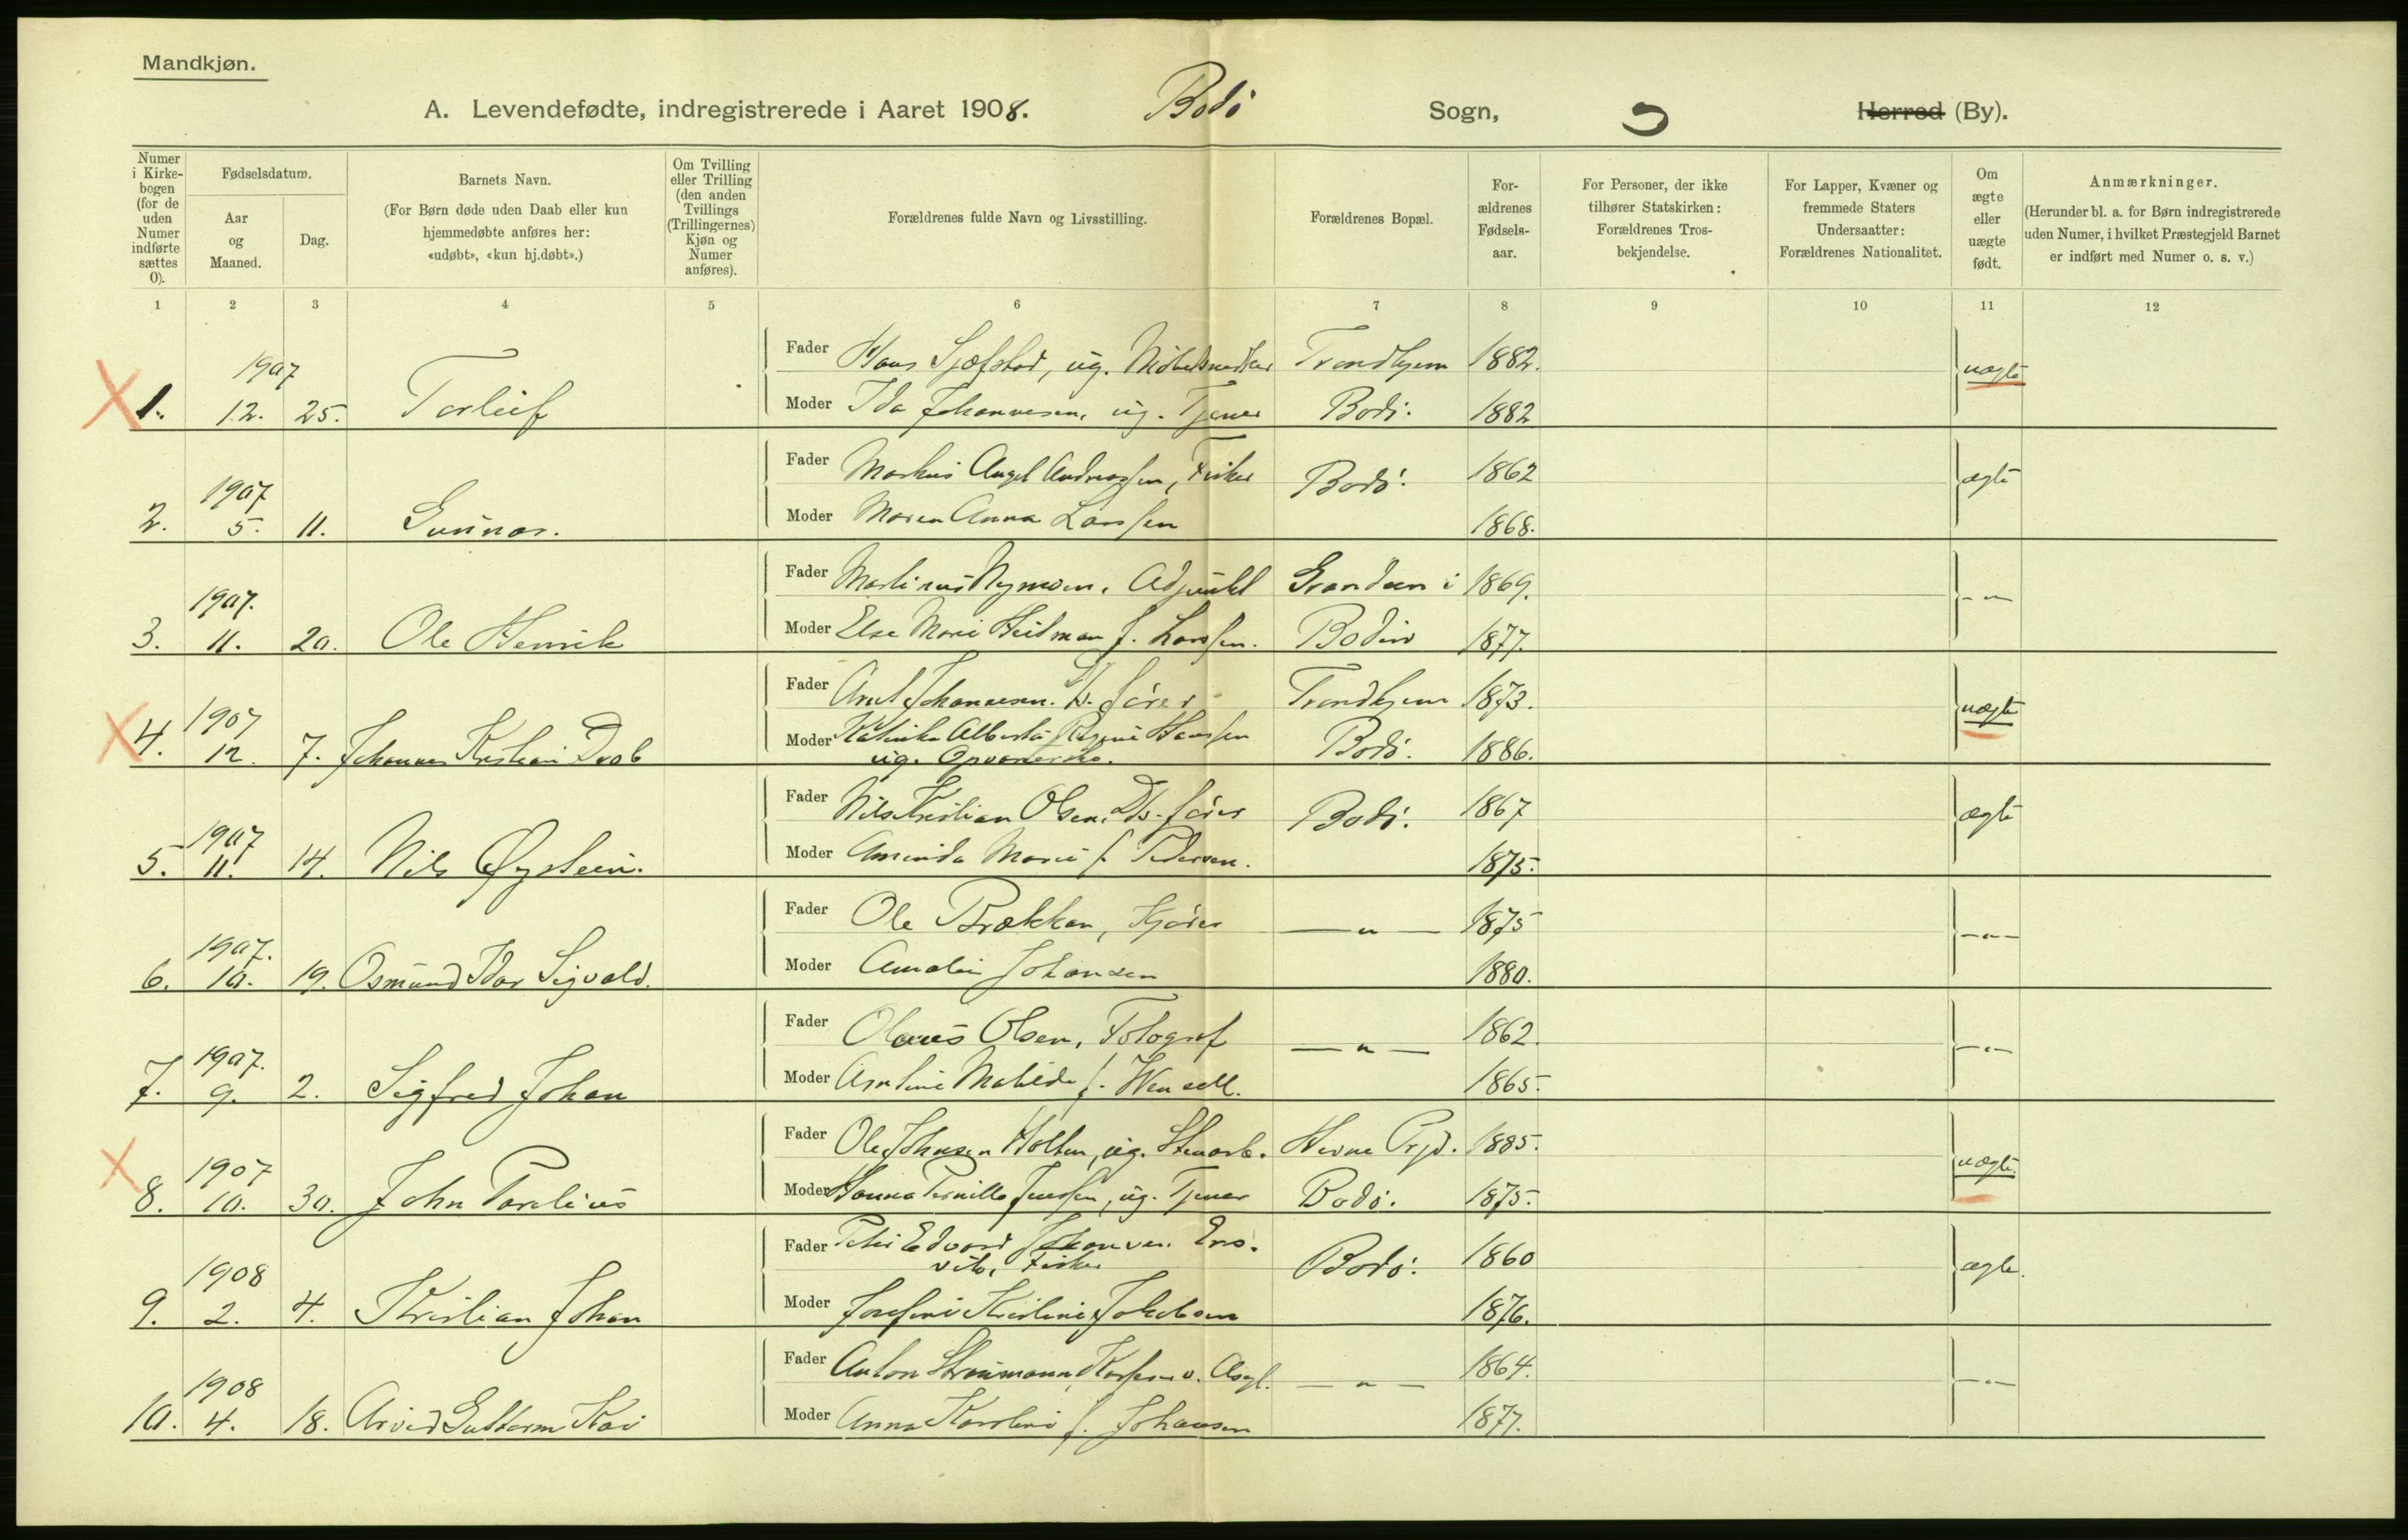 Mandkjøn.
A. Levendefødte, indregistrerede i Aaret 1908. Bodø Sogn, Herred (By).
Numer i Kirkebogen (for de uden Numer indførte sættes 0).
Fødselsdatum.
Aar og Maaned.
Dag.
Barnets Navn.
(For Børn døde uden Daab eller kun hjemmedøbte anføres her: «udøbt», «kun hj.døbt».)
Om Tvilling eller Trilling (den anden Tvillings (Trillingernes) Kjøn og Numer anføres).
Forældrenes fulde Navn og Livsstilling.
Forældrenes Bopæl.
For-ældrenes Fødsels-aar.
For Personer, der ikke tilhører Statskirken: Forældrenes Tros-bekjendelse.
For Lapper, Kvæner og fremmede Staters Undersaatter: Forældrenes Nationalitet.
Om ægte eller uægte født.
Anmærkninger.
(Herunder bl. a. for Børn indregistrerede uden Numer, i hvilket Præstegjeld Barnet er indført med Numer o. s. v.)
1 2 3 4 5 6 7 8 9 10 11 12
1907 Fader Hans ug. Møbelsnedker Trondhjem 1882. uægte
1. 12. 25. Torleif Moder Ida Johannesen, ug. Tjener Bodø. 1882
1907 Fader Markus Angel Andreassen, Fisker Bodø. 1862 ægte
2. 5. 11. Gunnar. Moder Maren Anna Larssen 1868.
1907. Fader Martinus Nymoen, Adjunkt i 1869. — " —
3. 11. 20. Ole Henrik Moder Else Marie Heitman f. Larssen. Bodin 1877.
1907 Fader Johannesen. D. fører Trondhjem 1873. uægte
4. 12. 7. Johannes Kristian Moder Alberta Hanssen Bodø. 1886.
ug.
1907 Fader Nils Kristian Olsen, Ds. fører Bodø. 1867 ægte
5. 11. 14. Nils Øystein. Moder Aminda Marie f. Pedersen. 1875.
1907. Fader Ole Brækkan, Kjører — " — 1875 — " —
6. 10. 19. Osmund Idar Sigvald. Moder Amalie Johansen 1880.
1907. Fader Olaus Olsen, Fotograf — " — 1862. — " —
7. 9. 2. Sigfred Johan Moder Matilde f. Wensell. 1865.
1907 Fader Ole Johnsen Holten, ug. Stenarb. Hevne Prgd. 1885. uægte
8. 10. 30. John Parelius Moder Hanna Pernille Jenssen, ug. Tjener Bodø. 1875.
1908 Fader Peter Edvard Fisker Bodø. 1860 ægte.
9. 2. 4. Kristian Johan Moder Josefine Kristine Jakobsen 1876.
1908 Fader Anton Straumann — " — 1864. — " —
10. 4. 18. Arvid Guttorm Kai Moder Anna Karoline f. Johansen 1877.